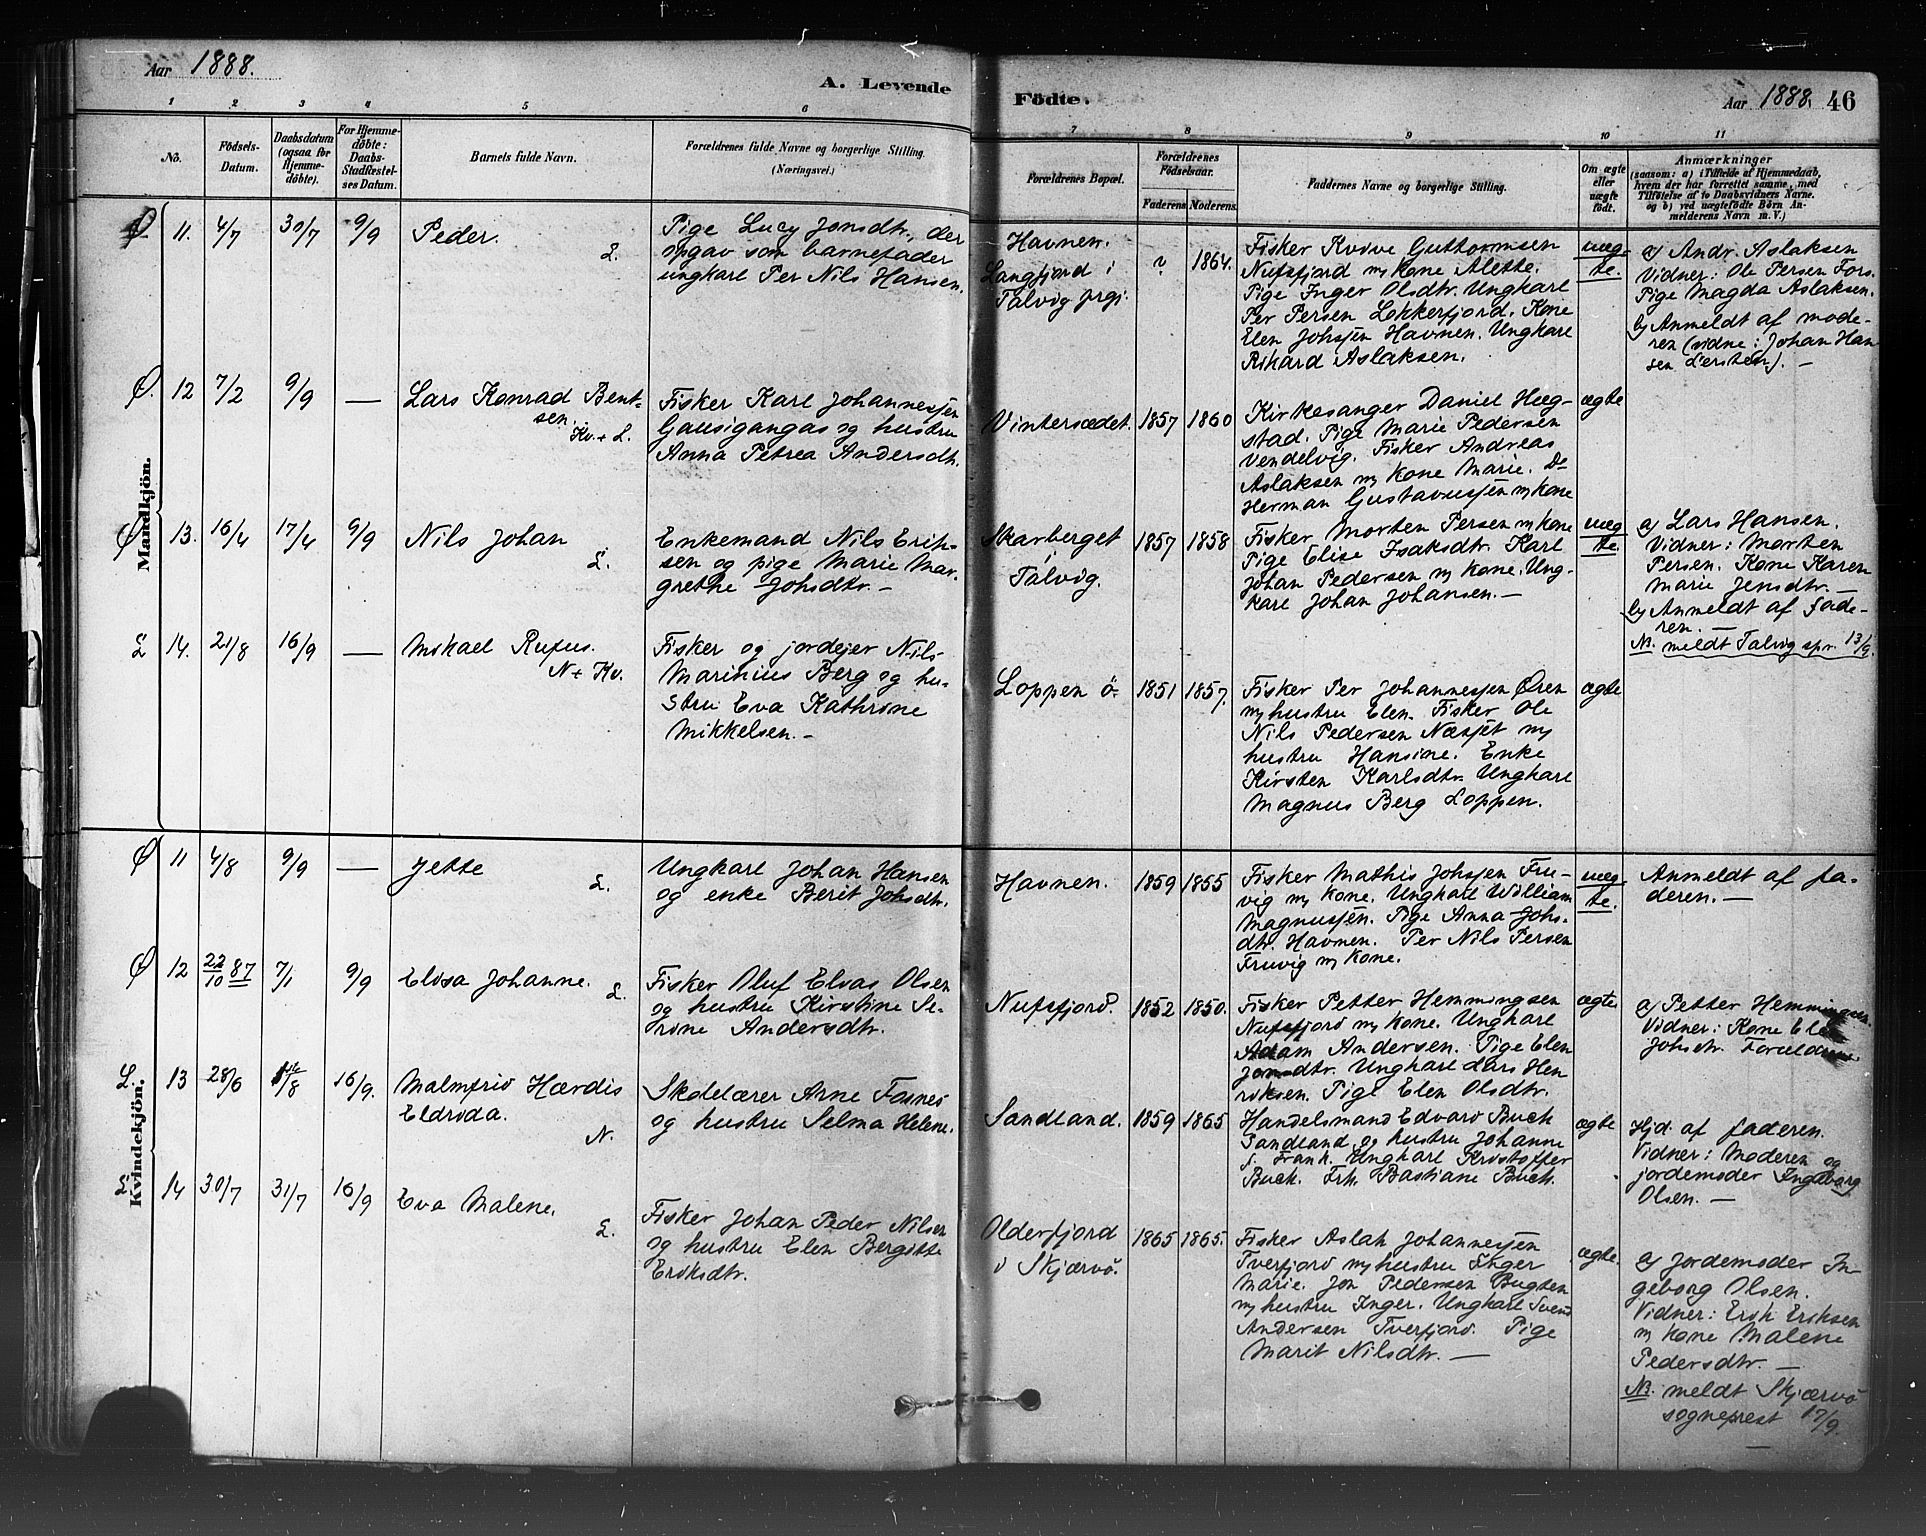 Aar 1888.
A. Levende
Födte.
Aar 1888. 46
1 2 3 4 5 6 7 8 9 10 11
No.
Födsels-
Datum.
Daabsdatum
(ogsaa for
Hjemme-
döbte).
For Hjemme-
döbte:
Daabs-
Stadfestel-
ses Datum.
Barnets fulde Navn.
Forældrenes fulde Navne og borgerlige Stilling.
(Næringsvei.)
Forældrenes Bopæl.
Forældrenes
Födselsaar.
Faderens. Moderens.
Faddernes Navne og borgerlige Stilling.
Om ægte
eller
uægte
födt.
Anmærkninger
(saasom: a) i Tilfælde af Hjemmedaab,
hvem der har forrettet samme, med
Tilföielse af to Daabsvidners Navne.
og b) ved uægtefödte Börn An-
melderens Navn m. V.)
Mandkjön.
Ø 11. 4/7 30/7 9/9 Peder.
L.
Pige Lucy Jonsdtr., der
opgav som barnefader
ungkarl Per Nils Hansen.
Havnen.
Langfjord i
Talvig prgj.
? 1864.
Fisker Kvive Guttormsen
Nufsfjord m kone Alette.
Pige Inger Olsdtr. Ungkarl
Per Persen Lokkerfjord. Kone
Elen Johsjen Havnen. Ungkarl
Rikard Aslaksen.
uæg-
te.
a) Andr. Aslaksen
Vidner: Ole Persen Fors.
Pige Magda Aslaksen.
b) Anmeldt af mode-
ren (vidne: Johan Han
sen Lersten). —
Ø. 12 7/2 9/9 — Lars Konrad Bent-
sen.
Kv. + L.
Fisker Karl Johannesjen
Gausigangas og hustru
Anna Petrea Andersdtr.
Vintersædet. 1857 1860
Kirkesanger Daniel Hæg-
stad. Pige Marie Pedersen
Vendelvig. Fisker Andreas
Aslaksen m kone Marie. Do
Herman Gustavusjen m kone
ægte
Ø 13. 16/4 17/4 9/9 Nils Johan
L.
Enkemand Nils Erik-
sen og pige Marie Mar-
grethe Johsdtr. —
Skarberget
i
Talvig.
1857 1858
Fisker Morten Persen m kone
Pige Elise Isaksdtr. Karl
Johan Pedersen m kone. Ung-
karl Johan Johansen. —
uæg
te.
a) Lars Hansen.
Vidner: Morten
Persen. Kone Karen
Marie Jensdtr. —
b) Anmeldt af fade-
ren. —
NB. meldt Talvig spr. 13/9.
L 14. 21/8 16/9 — Mikael Rufus.
N + Kv.
Fisker og jordejer Nils
Marinius Berg og hu-
stru Eva Kathrine
Mikkelsen. —
Loppen ö. 1851 1857.
Fisker Per Johannesjen Øren
m hustru Elen. Fisker Ole
Nils Pedersen Næsjet m
hustru Hansine. Enke
Kirsten Karlsdtr. Ungkarl
Magnus Berg Loppen.
ægte
Kvindekjön.
Ø 11 4/8 9/9 — Jette
L.
Ungkarl Johan Hansen
og enke Berit Johsdtr.
Havnen. 1859 1855
Fisker Mathis Johsjen Fru-
vig m kone. Ungkarl William
Magnusjen. Pige Anna Johs-
dtr. Havnen. Per Nils Persen
Fruvig m kone.
uæg-
te.
Anmeldt af fa-
deren. —
Ø 12 22/10 87 7/1 9/9 Elisa Johanne.
L.
Fisker Oluf Elias Olsen
og hustru Kirstine Se-
rine Andersdtr.
Nufsfjord. 1852 1850.
Fisker Petter Hemmingsen
Nufsfjord m kone. Ungkarl
Adam Andersen. Pige Elen
Jonsdtr. Ungkarl Lars Hen
riksen. Pige Elen Olsdtr.
ægte
a) Petter Hemmingsen.
Vidner: Kone Elen
Johsdtr. Forældrene
L. 13 28/6 /8 16/9. Malmfrid Hærdis
Eldrida.
N.
Skolelærer Arne Fosnes
og hustru Selma Helene.
Sandland. 1859 1865
Handelsmand Edvard Buck
Sandland og hustru Johanne
f. Frank. Ungkarl Kristoffer
Buck. Frk. Bastiane Buck.
ægte
Hjd. af faderen.
Vidner: Moderen og
jordemoder Ingeborg
Olsen. —
L 14 30/7 31/7 16/9 Eva Malene.
L.
Fisker Johan Peder Nilsen
og hustru Elen Bergitte
Eriksdtr.
Olderfjord
i Skjærvö.
1865 1865.
Fisker Aslak Johannesjen
Tverfjord m hustru Inger
Marie. Jon Pedersen Bugten
m hustru Inger. Ungkarl Svend
Andersen Tverfjord. Pige
Marit Nilsdtr. —
ægte.
a) Jordemoder In-
geborg Olsen.
Vidner: Erik Eriksen
m kone Malene
Pedersdtr. —
NB. meldt Skjærvö
sogneprest 17/9.
—